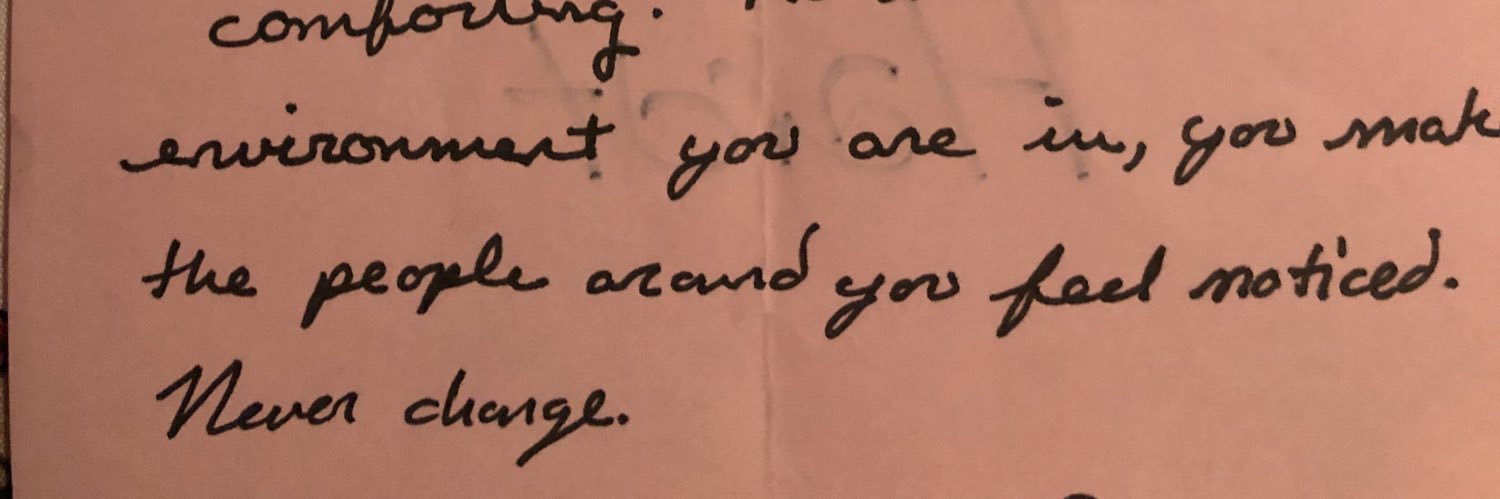 comforting.
environment you are in, you mak
the people around you feel noticed.
Never change.